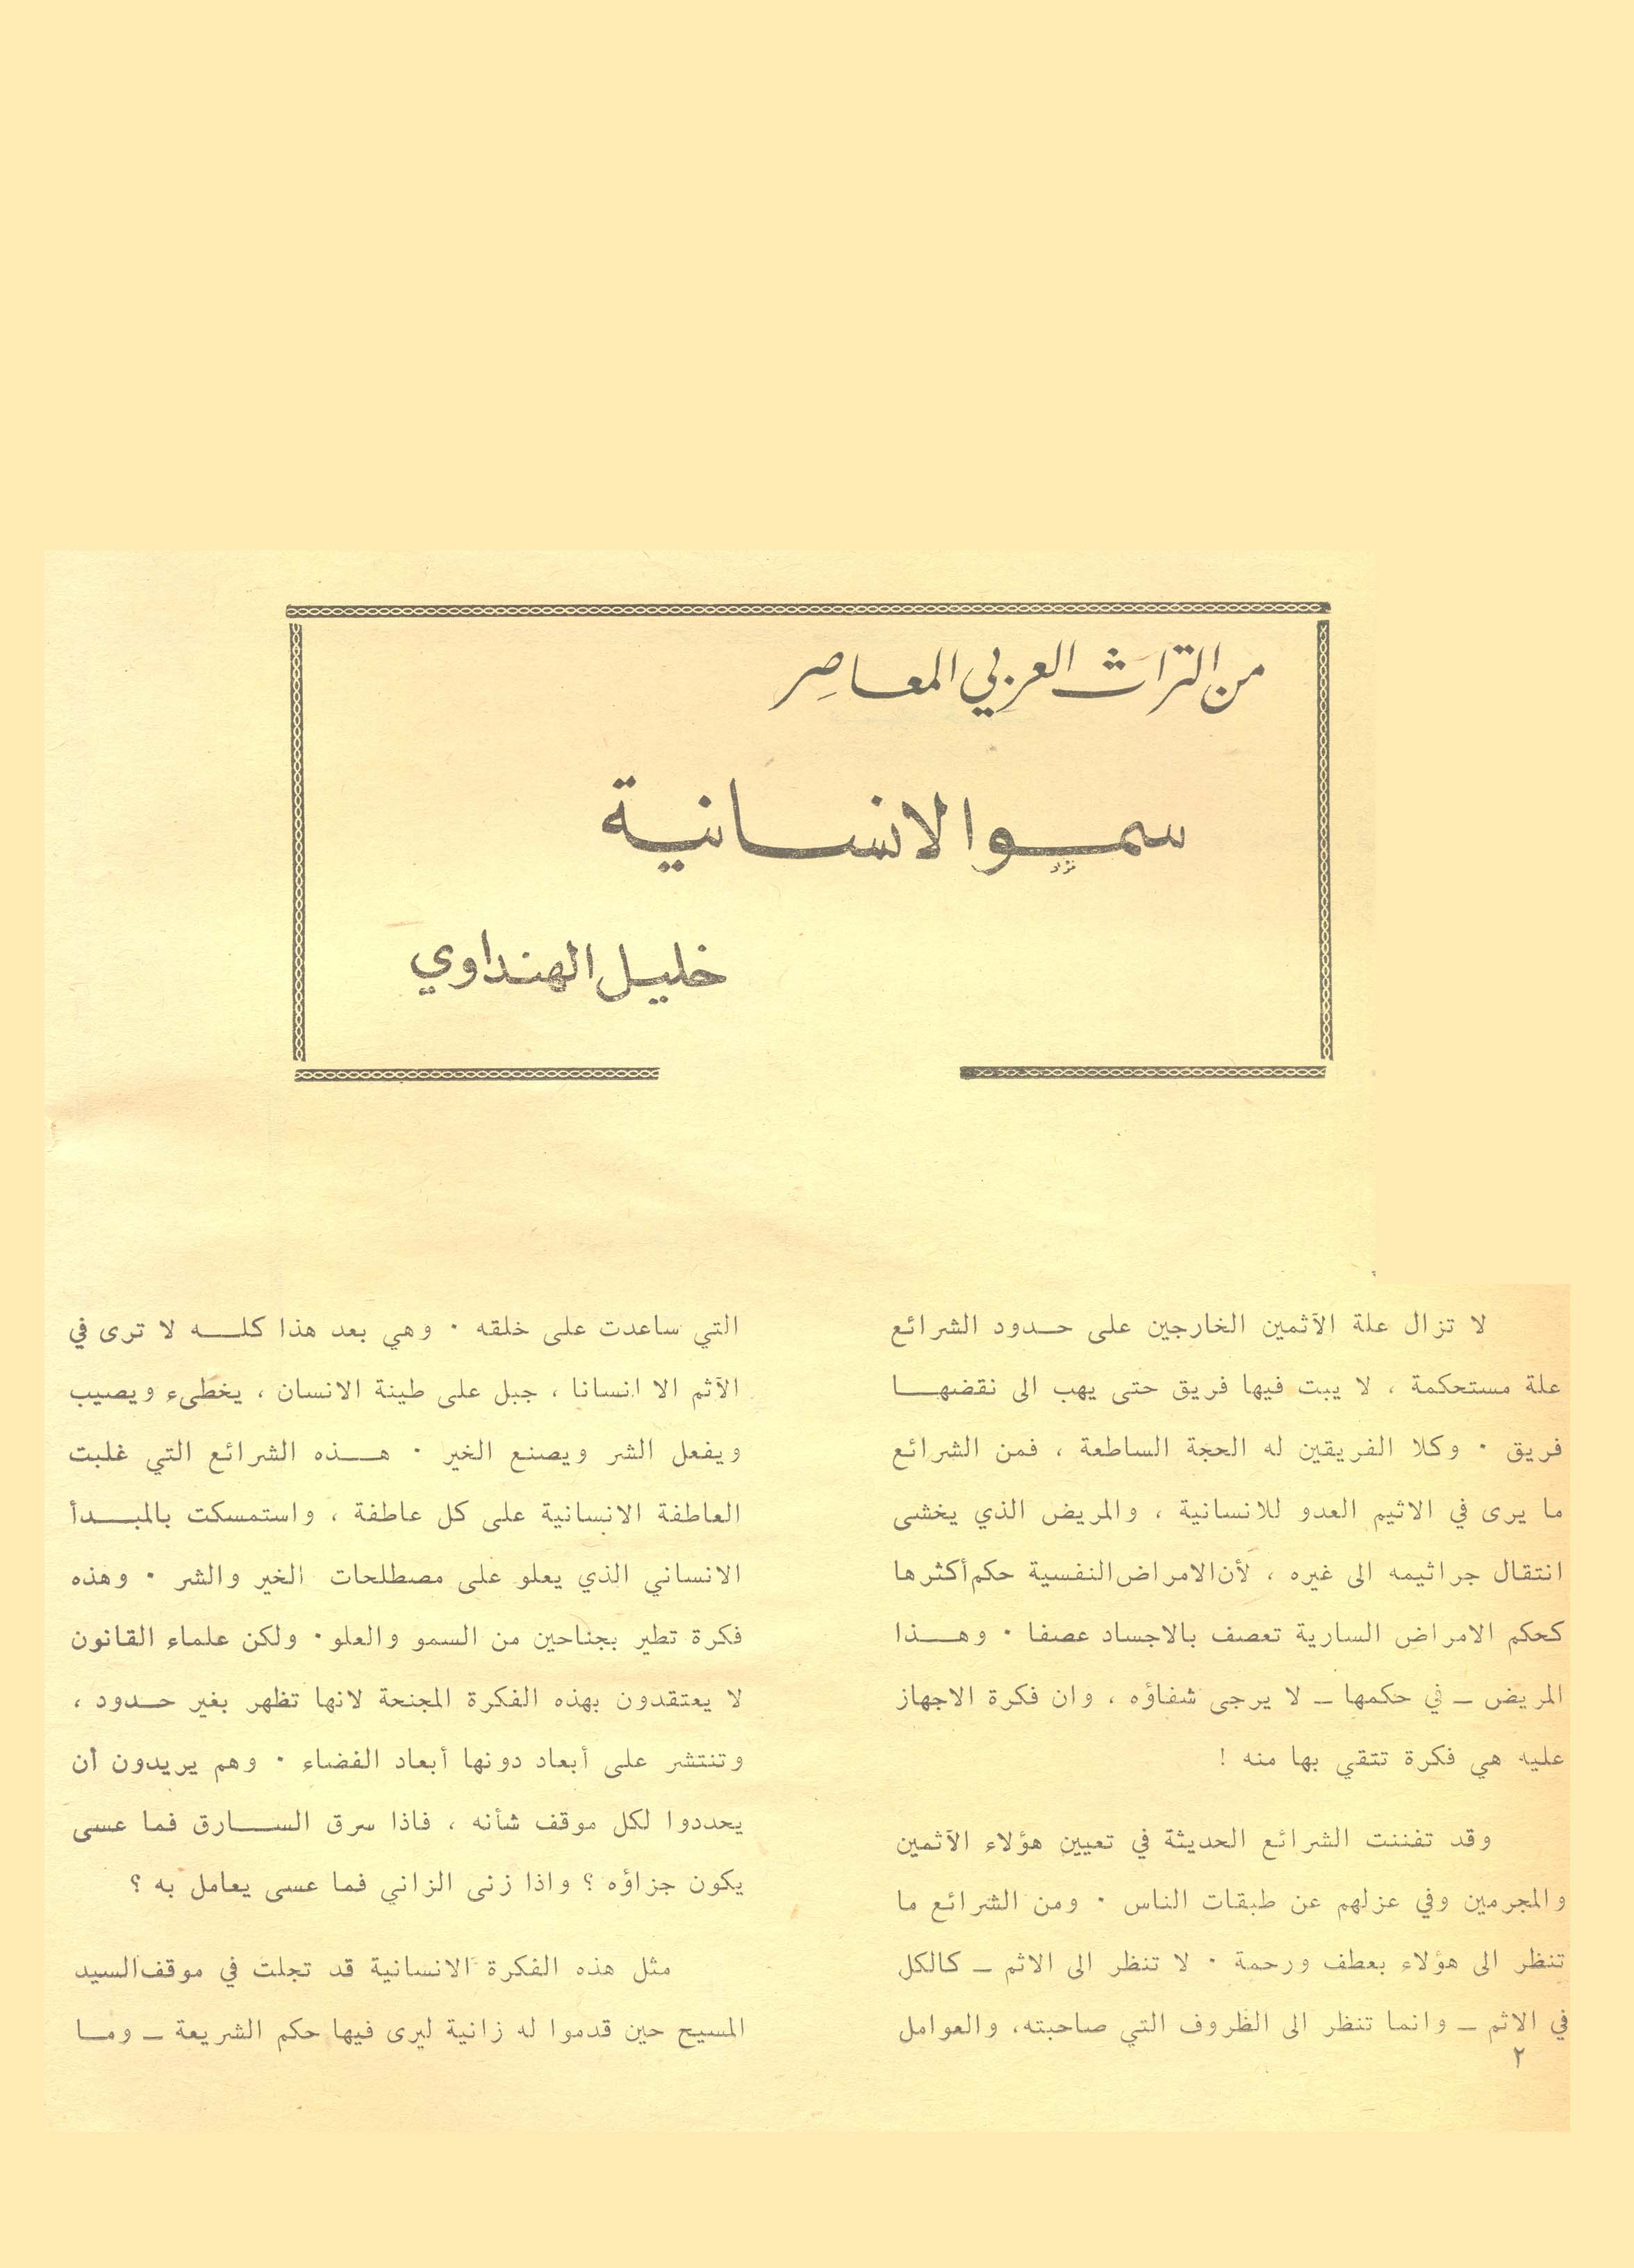 من التراث العربي المعاصر
سمو الانسانية
خليل الهنداوي
لا تزال علة الآثمين الخارجين على حدود الشرائع
علة مستحكمة ، لا يبت فيها فريق حتى يهب الى نقضها
فريق . وكلا الفريقين له الحجة الساطعة ، فمن الشرائع
ما يرى في الاثيم العدو للانسانية ، والمريض الذي يخشى
انتقال جراثيمه الى غيره ، لأن الامراض النفسية حكم أكثرها
كحكم الامراض السارية تعصف بالاجساد عصفا . وهذا
المريض _ في حكمها _ لا يرجى شفاؤه ، وان فكرة الاجهاز
عليه هي فكرة تتقي بها منه !
وقد تفننت الشرائع الحديثة في تعيين هؤلاء الآثمين
والمجرمين وفي عزلهم عن طبقات الناس . ومن الشرائع ما
تنظر الى هؤلاء بعطف ورحمة . لا تنظر الى الاثم _ كالكل
في الاثم _ وانما تنظر الى الظروف التي صاحبته، والعوامل
التي ساعدت على خلقه . وهي بعد هذا كله لا ترى في
الآثم الا انسانا ، جبل على طينة الانسان ، يخطىء ويصيب
ويفعل الشر ويصنع الخير . هذه الشرائع التي غلبت
العاطفة الانسانية على كل عاطفة ، واستمسكت بالمبدأ
الانساني الذي يعلو على مصطلحات الخير والشر . وهذه
فكرة تطير بجناحين من السمو والعلو . ولكن علماء القانون
لا يعتقدون بهذه الفكرة المجنحة لانها تظهر بغير حدود ،
وتنتشر على أبعاد دونها أبعاد الفضاء . وهم يريدون أن
يحددوا لكل موقف شأنه ، فاذا سرق السارق فما عسى
يكون جزاؤه ؟ واذا زنى الزاني فما عسى يعامل به ؟
مثل هذه الفكرة الانسانية قد تجلت في موقف السيد
المسيح حين قدموا له زانية ليرى فيها حكم الشريعة _ وما
٢